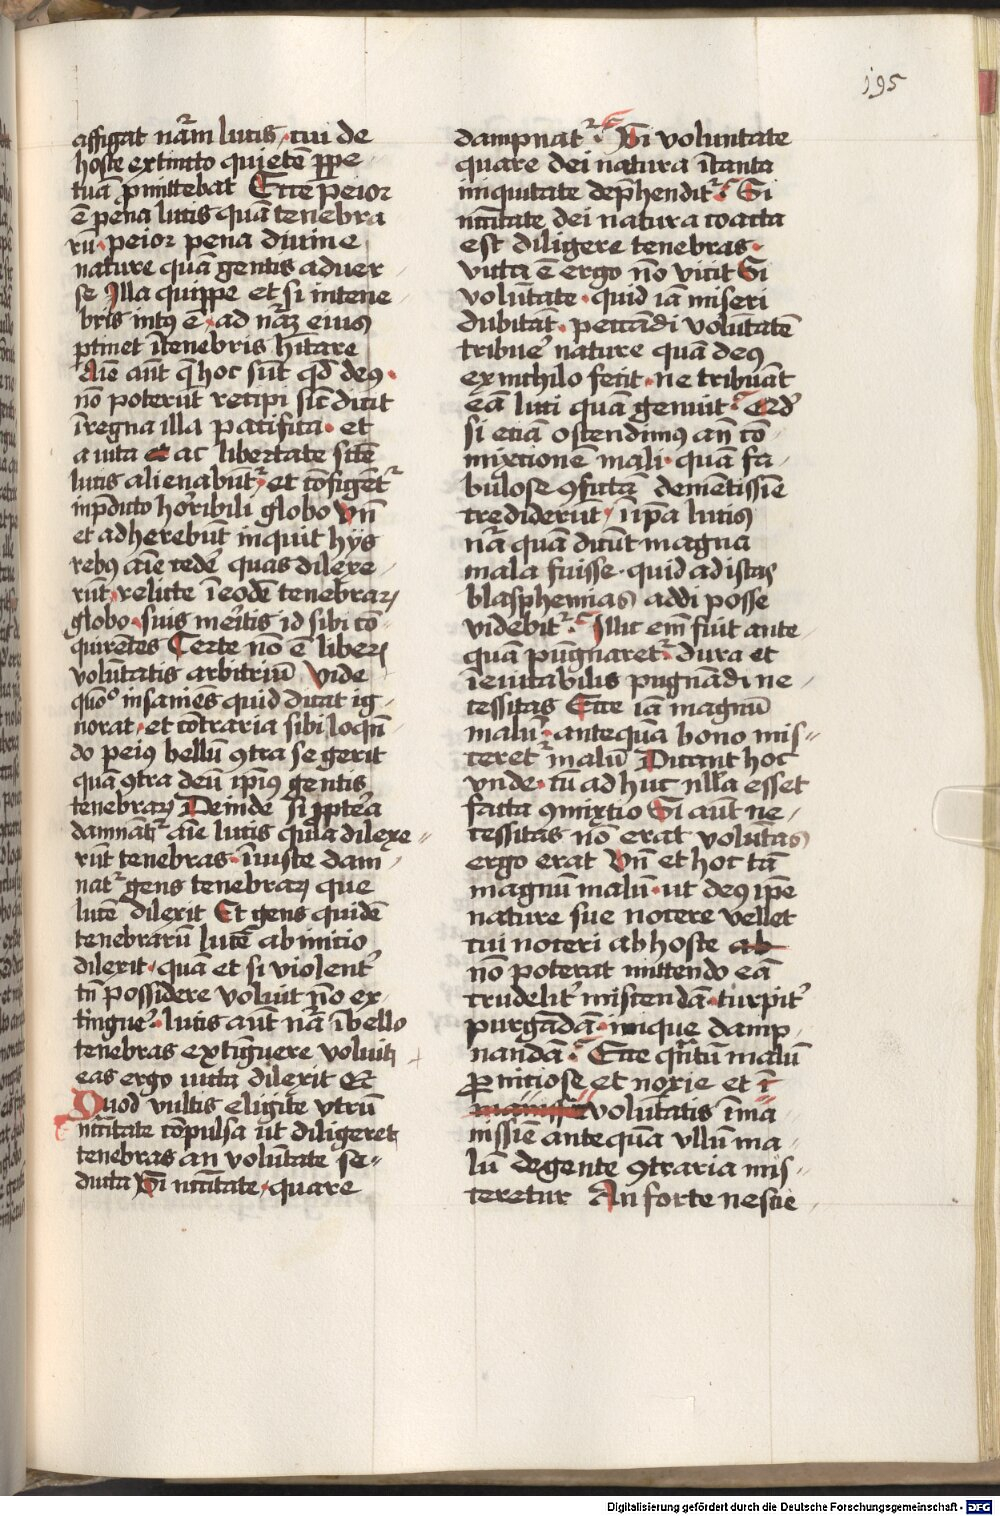 195
affigat nr̄am lucis · cui de
hoste extincto quietē ꝑpe
tuā ꝓmittebat Ecce peior
ē pena lucis quā tenebra
rū · peior pena diuine
nature quā gentis aduer
se Illa quippe et si intene
bris intꝰ ē · ad nr̄aꝫ eiꝰ
ꝑtinet ītenebris hītare
Aīe aūt q̄ hoc sūt qd̄ deꝰ ·
nō poterūt recipi sic̄ dicit
īregna illa pacifica · et
a uita et ac libertate sc̄e
lucis alienabūt᷑ · et cōfigēt᷑
in p̄dicto horribili globo Vn̄
et adherebūt inquit hijs
rebꝰ aīe eedē quas dilexe
rūt · relicte ī eodē tenebraꝝ
globo · suis meritis id sibi cō
quirētes Certe nō ē liberꝝ
volūtatis arbitriū Vide
quōº insaniēs quid dicat ig
norat · et cōtraria sibi loquē
do peiꝰ bellū ꝯtra se gerit
quā ꝯtra deū ipīꝰ gentis
tenebraꝝ Deinde si ꝓpterea
damnāt᷑ aīe lucis quia dilexe
rūt tenebras · īiuste dam
nat᷑ gens tenebraꝝ que
lucē dilexit Et gens quidē
tenebrarū lucē ab inicio
dilexit · quā et si violent᷑
tn̄ possidere voluit nō ex
tinguer᷑ · lucis aūt nr̄a ī bello
tenebras extīguere voluit
eas ergo uicta dilexit Et
Quod vultis eligite vtrū
nc̄citate cōpulsa ut diligeret
tenebras an volūtate se
ducta Si nc̄citate · quare
dampnat᷑ · Si voluntate
quare dei natura ītanta
iniquitate dep̄hendit᷑ · Si
nc̄citate dei natura coacta
est diligere tenebras ·
victa ē ergo nō vicit Si
volūtate · quid iā miseri
dubitāt · peccādi volūtatē
tribue᷑ nature quā deꝰ
ex nichilo fecit · ne tribuāt
eā luci quā genuit · Qd᷑
si etiā ostendimꝰ an̄ cō
mixtionē mali · quā fa
bulose ꝯfictā demētissīe
crediderūt · in ip̄a lucis
nr̄a quā dicūt magna
mala fuisse · quid ad istas
blasphemias addi posse
videbit᷑ · Illic em̄ fuit ante
quā pugnaret᷑ · dura et
īeuitabilis pugnādi ne
cessitas Ecce iā magnū
malū · antequā bono mis
ceret᷑ malū Dicant hoc
vnde · cū adhuc nll̄a esset
facta ꝯmixtio Si aūt ne
cessitas nō erat volūtas
ergo erat Vn̄ et hoc tā
magnū malū · ut deꝰ ip̄e
nature sue nocere vellet
cui noceri ab hoste ab
nō poterat mittendo eā
crudelit᷑ miscendā · turpit᷑
purgādā · inique damp
nandā · Ecce qn̄tum malū
ꝑniciose et noxie et ī
volūtatis īma
nissīe antequā vllū ma
lū de gente ꝯtraria mis
ceretur An forte nescie
Digitalisierung gefördert durch die Deutsche Forschungsgemeinschaft - DFG